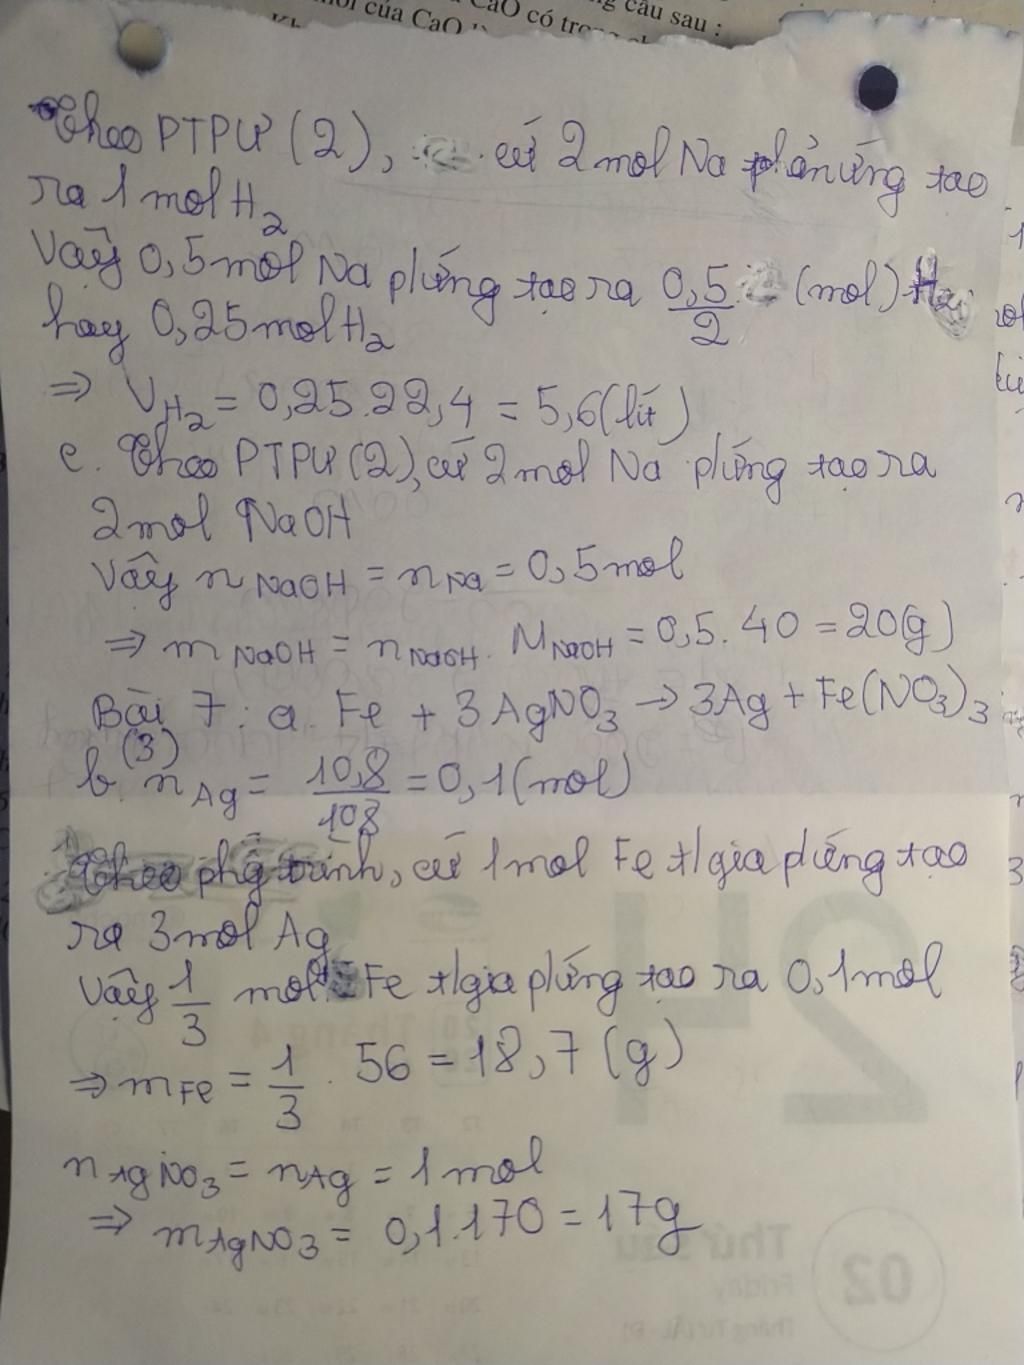 ng câu sau :
CaO có trong
mol của CaO
Theo PTPƯ (2), cứ 2 mol Na phản ứng tạo
ra 1 mol H2
Vậy 0,5 mol Na p/ứng tạo ra 0,5/2 (mol) H2
hay 0,25 mol H2
⇒ VH2 = 0,25.22,4 = 5,6 (lít)
c. Theo PTPƯ (2), cứ 2 mol Na p/ứng tạo ra
2 mol NaOH
Vậy nNaOH = nNa = 0,5 mol
⇒ mNaOH = nNaOH. MNaOH = 0,5. 40 = 20(g)
Bài 7: a. Fe + 3 AgNO3 → 3Ag + Fe(NO3)3
(3)
b. nAg = 10,8/108 = 0,1 (mol)
Theo phg trình, cứ 1 mol Fe t/gia p/ứng tạo
ra 3 mol Ag
Vậy 1/3 mol Fe t/gia p/ứng tạo ra 0,1 mol
⇒ mFe = 1/3 . 56 = 18,7 (g)
nAgNO3 = nAg = 1 mol
⇒ mAgNO3 = 0,1.170 = 17g
24
20 Tháng 4
Thứ sáu
Friday
02